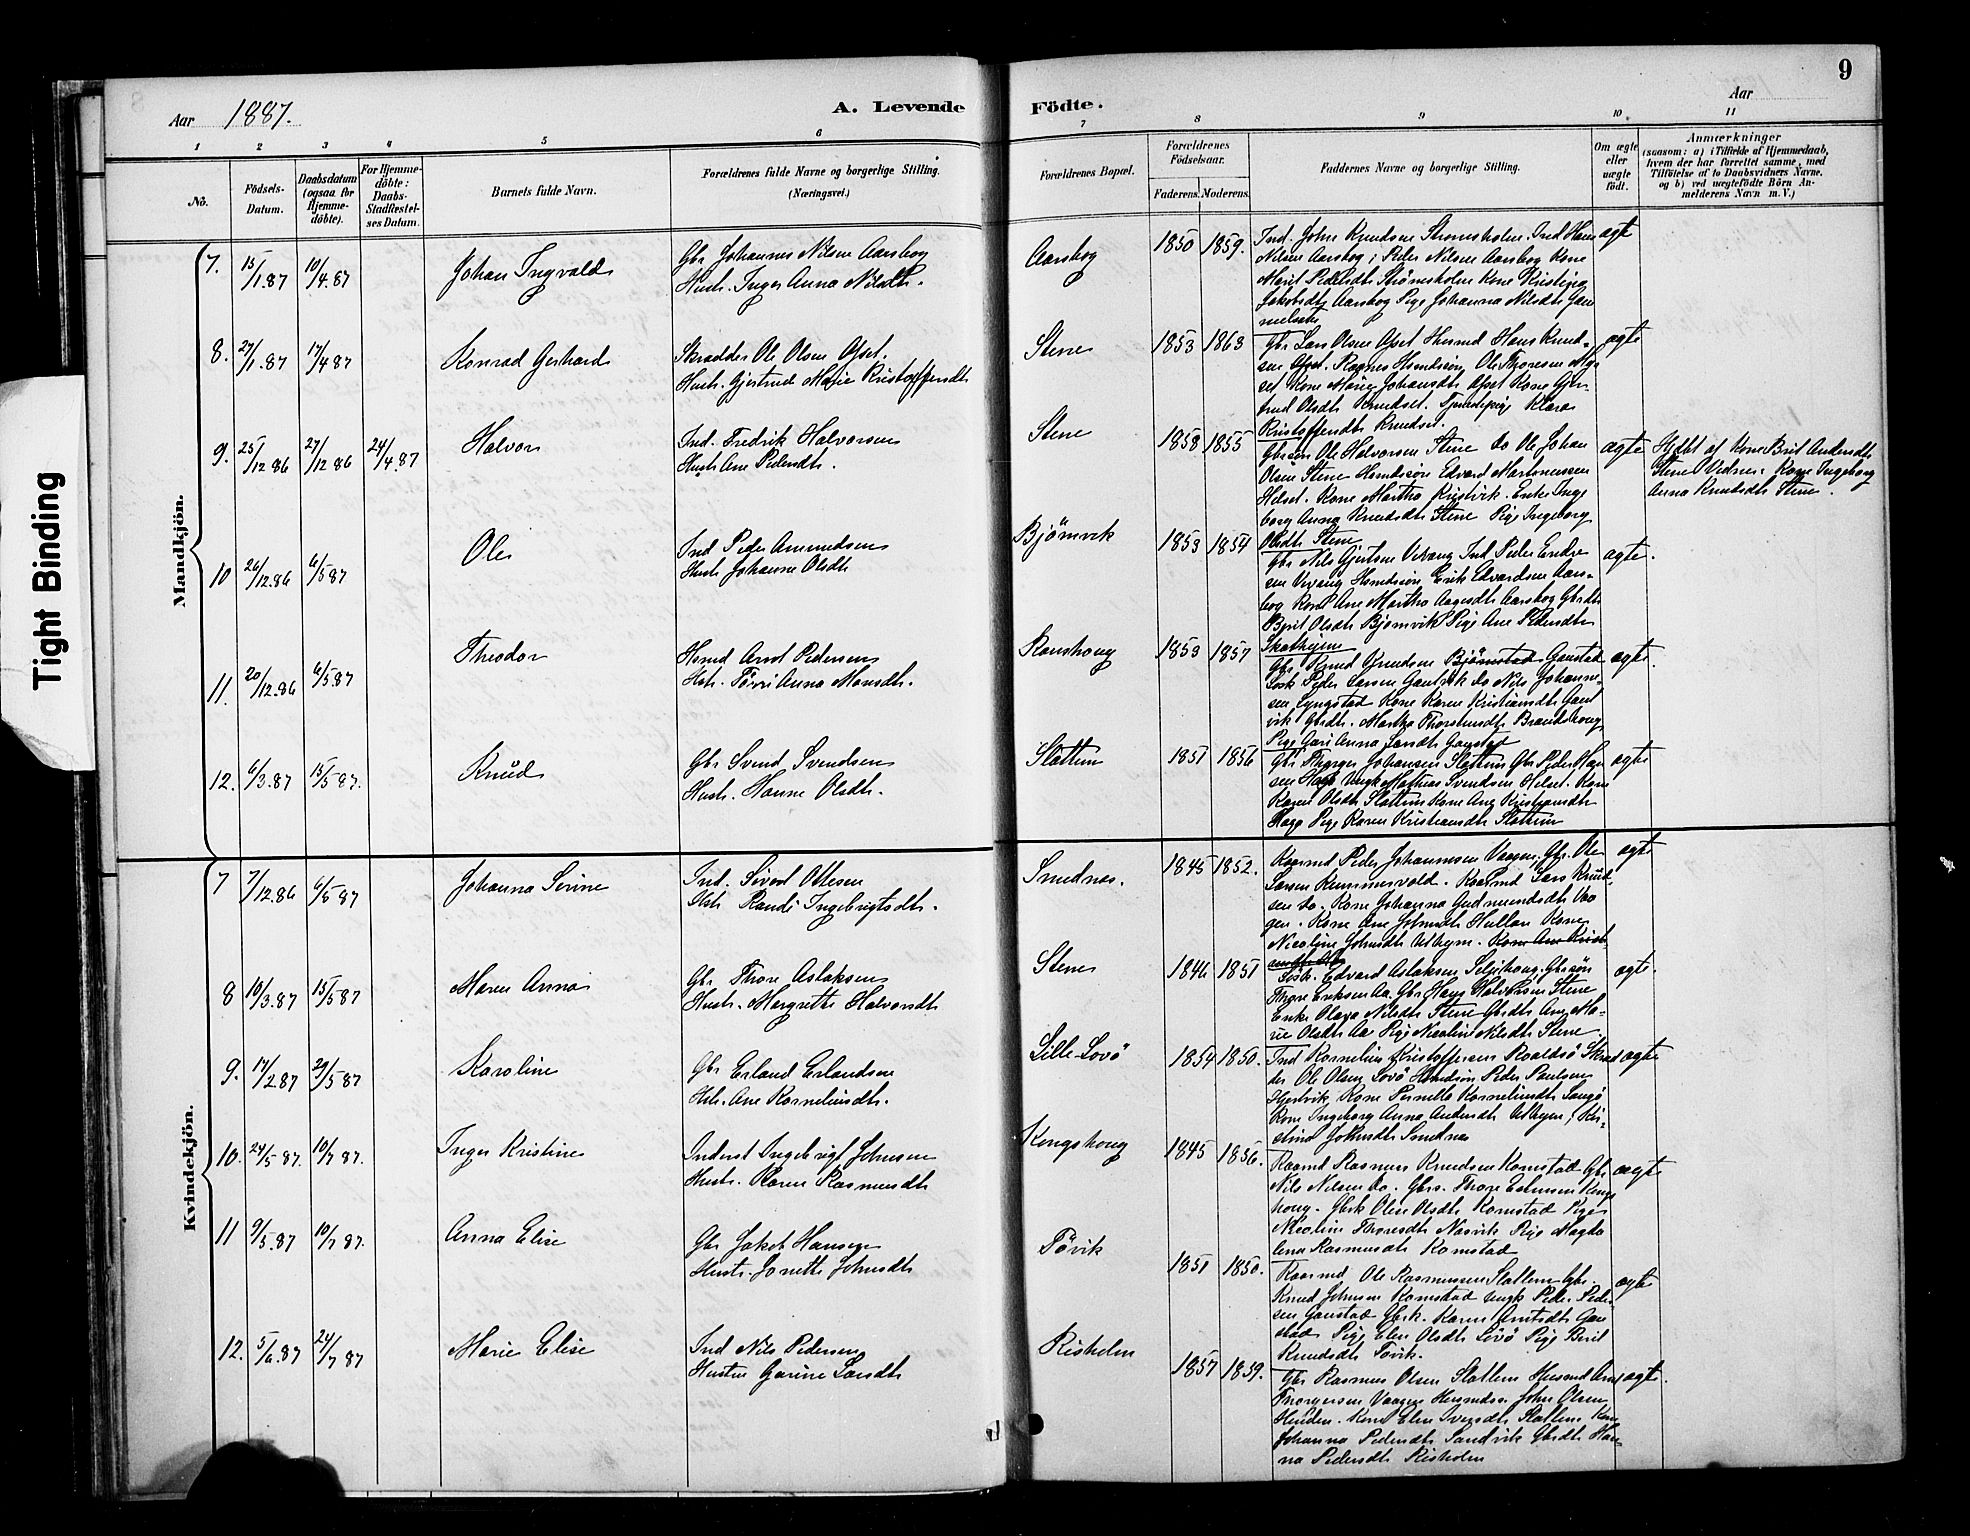 8
9
Tight Binding
Aar 1887.
A. Levende
Födte.
Aar
1 2 3 4 5 6 7 8 9 10 11
No.
Födsels-
Datum.
Daabsdatum
(ogsaa for
Hjemme-
döbte).
For Hjemme-
döbte:
Daabs-
Stadfæstel-
ses Datum.
Barnets fulde Navn.
Forældrenes fulde Navne og borgerlige Stilling.
(Næringsvei.)
Forældrenes Bopæl.
Forældrenes
Födselsaar.
Faderens.
Moderens.
Faddernes Navne og borgerlige Stilling.
Om ægte
eller
uægte
födt.
Anmærkninger
(saasom: a) i Tilfælde af Hjemmedaab,
hvem der har forrettet samme, med
Tilföielse af to Daabsvidners Navne,
og b) ved uægtefödte Börn An-
melderens Navn m. V.)
Mandkjön.
7. 15/1.87 10/4.87 Johan Ingvald
Gbr Johannes Nilsen Aarsbog
Hustr. Inger Anna Nilsdtr.
Aarsbog 1850 1859.
Ind. John Knudsen Strømsholm. Ind Hans
Nilsen Aarsbog, Peder Nilsen Aarsbog Kone
Marit Pedersdtr Strømsholm Kone
Jakobsdtr Aarsbog Pige Johanna Nilsdtr
ægte
8. 27/1.87 17/4 87 Konrad Gerhard
Skrædder Ole Olsen
Hustr. Gjertrud Marie Kristoffersdtr
Stene 1853 1863
Gbr Lars Olsen
Kristoffersdtr Knudset.
ægte
9. 25/12 86 27/12 86 24/4.87 Halvor
Ind. Fredrik Halvorsen
Hustr Ane Pedersdtr.
Stene 1858 1855
Gbrsøn Ole Halvorsen Stene do Ole Johan
Olsen Stene Hsmdssøn Edvard Martinussen
Helset. Kone Martha Kristvik. Enke Inge
borg Anna Knudsdtr Stene Pige Ingeborg
Olsdtr Stene
ægte
Hjdbt af Kone Brit Andersdtr
Stene Vidner: Kone Ingeborg
Anna Knudsdtr Stene.
10 26/12.86 6/5 87 Ole
Ind Peder Amundsen
Hustr Johanne Olsdtr
Bjömvik 1853 1854
Gbr Nils Gjertsen Vevang Ind Peder Endre
sen Vevang Hsmdssøn Erik Edvardsen Aars-
bog Kone Ane Martha Aagesdtr Aarsbog Gbrdtr
Brit Olsdtr Bjømvik Pige Ane Pedersdtr
ægte.
11. 20/12.86 6/5.87 Theodor
Hsmd Arnt Pedersen
Hstr. Anna Monsdtr.
Ramshoug 1853 1857
Gbr Knud Knudsen Bjørnstad Gaustad
Peder Larsen Gautvik do Nils Johanne-
sen Lyngstad Kone Karen Kristiansdtr Gaut
vik Gbrdtr. Martha Thorstensdtr Brandshoug
Pige Guri Anna Larsdtr Gaustad
ægte.
12. 6/3.87 15/5 87. Knud
Gbr Svend Svendsen
Hustr. Hanne Olsdtr.
Slottem 1851 1856
Gbr Thorger Johansen Slattem Gbr Peder Han
sen Haga Ungk Mathias Svendsen Helset. Kone
Karen Olsdtr Slattem Kone Ane Kristiansdtr
Haga Pige Karen Kristiansdtr Slattem
ægte
Kvindekjön.
7 7/12.86 6/5 87 Johanna Serine
Ind. Sivert Ottesen
Hstr Randi Ingebrigtsdtr.
Smednes. 1845 1852.
Kaarmd Peder Johannesen Vaagen. Gbr. Ole
Larsen Kummervold. Kaarmd Lars Knud-
sen do. Kone Johanna Gudmundsdtr Vaa
gen. Kone Ane Johnsdtr Hullan Kone
Nicoline Johnsdtr Utheim.
ægte
8 10/3.87 15/5 87 Maren Anna
Gbr Thore Aslaksen
Hustr. Margrethe Halvorsdtr
Stene 1846 1851
Edvard Aslaksen Seljehoug. Gbrssøn
Thore Eriksen Aa. Gbr Hans Halvorsen Stene
Enke Olava Nilsdtr Stene Gbrdtr Ane Ma-
rie Olsdtr Aa Pige Nicoline Nilsdtr Stene.
ægte.
9. 14/2.87 29/5 87 Karoline
Gbr Erland Erlandsen
Hstr. Ane Korneliusdtr.
Lille-Lovö 1854 1850.
Ind Kornelius Kristoffersen Roaldsö Skræd
der Ole Olsen Lovö Hsmdssøn Peder Paulsen
Kone Pernella Korneliusdtr
Kone Ingeborg Anna Andersdtr Utheim, Kri-
stine Johnsdtr Smednes
ægte
10. 24/5 87. 10/7 87. Inger Kristine
Inderst Ingebrigt Johnsen
Hustr. Karen Rasmusdtr
Kongshoug 1845 1856.
Kaarmd Rasmus Knudsen Romstad Gbr
Nils Nilsen do. Gbrs. Thore
houg. Gbrk Oline Olsdtr Romstad Pige
Nicoline Thoresdtr Næsvik Pige Magda
lena Rasmusdtr Romstad
ægte
11 9/5.87 10/7 87. Anna Elise
Gbr Jakob Hansen
Hustr. Jonette Johnsdtr
Tövik 1851 1850.
Kaarmd Ole Rasmussen Slatlem Gbr.
Knud Johnsen Romstad Ungk Peder Peder
sen Gaustad Gbrk. Karen Arntsdtr Gau
stad Pige Elen Olsdtr Lovö Pige Beret
Knudsdtr Tövik.
ægte
12. 5/6.87 24/7 87 Marie Elise
Ind Nils Pedersen
Hustru Gurine Larsdtr
Risholm 1857 1859.
Gbr Rasmus Olsen Slatlem Husmd
Thorgersen Vaagen John Olsen
Kone Elen Iversdtr Slatlem Kone
Johanna Pedersdtr Sandvik Gbrdtr Han-
na Pedersdtr Risholm
ægte.